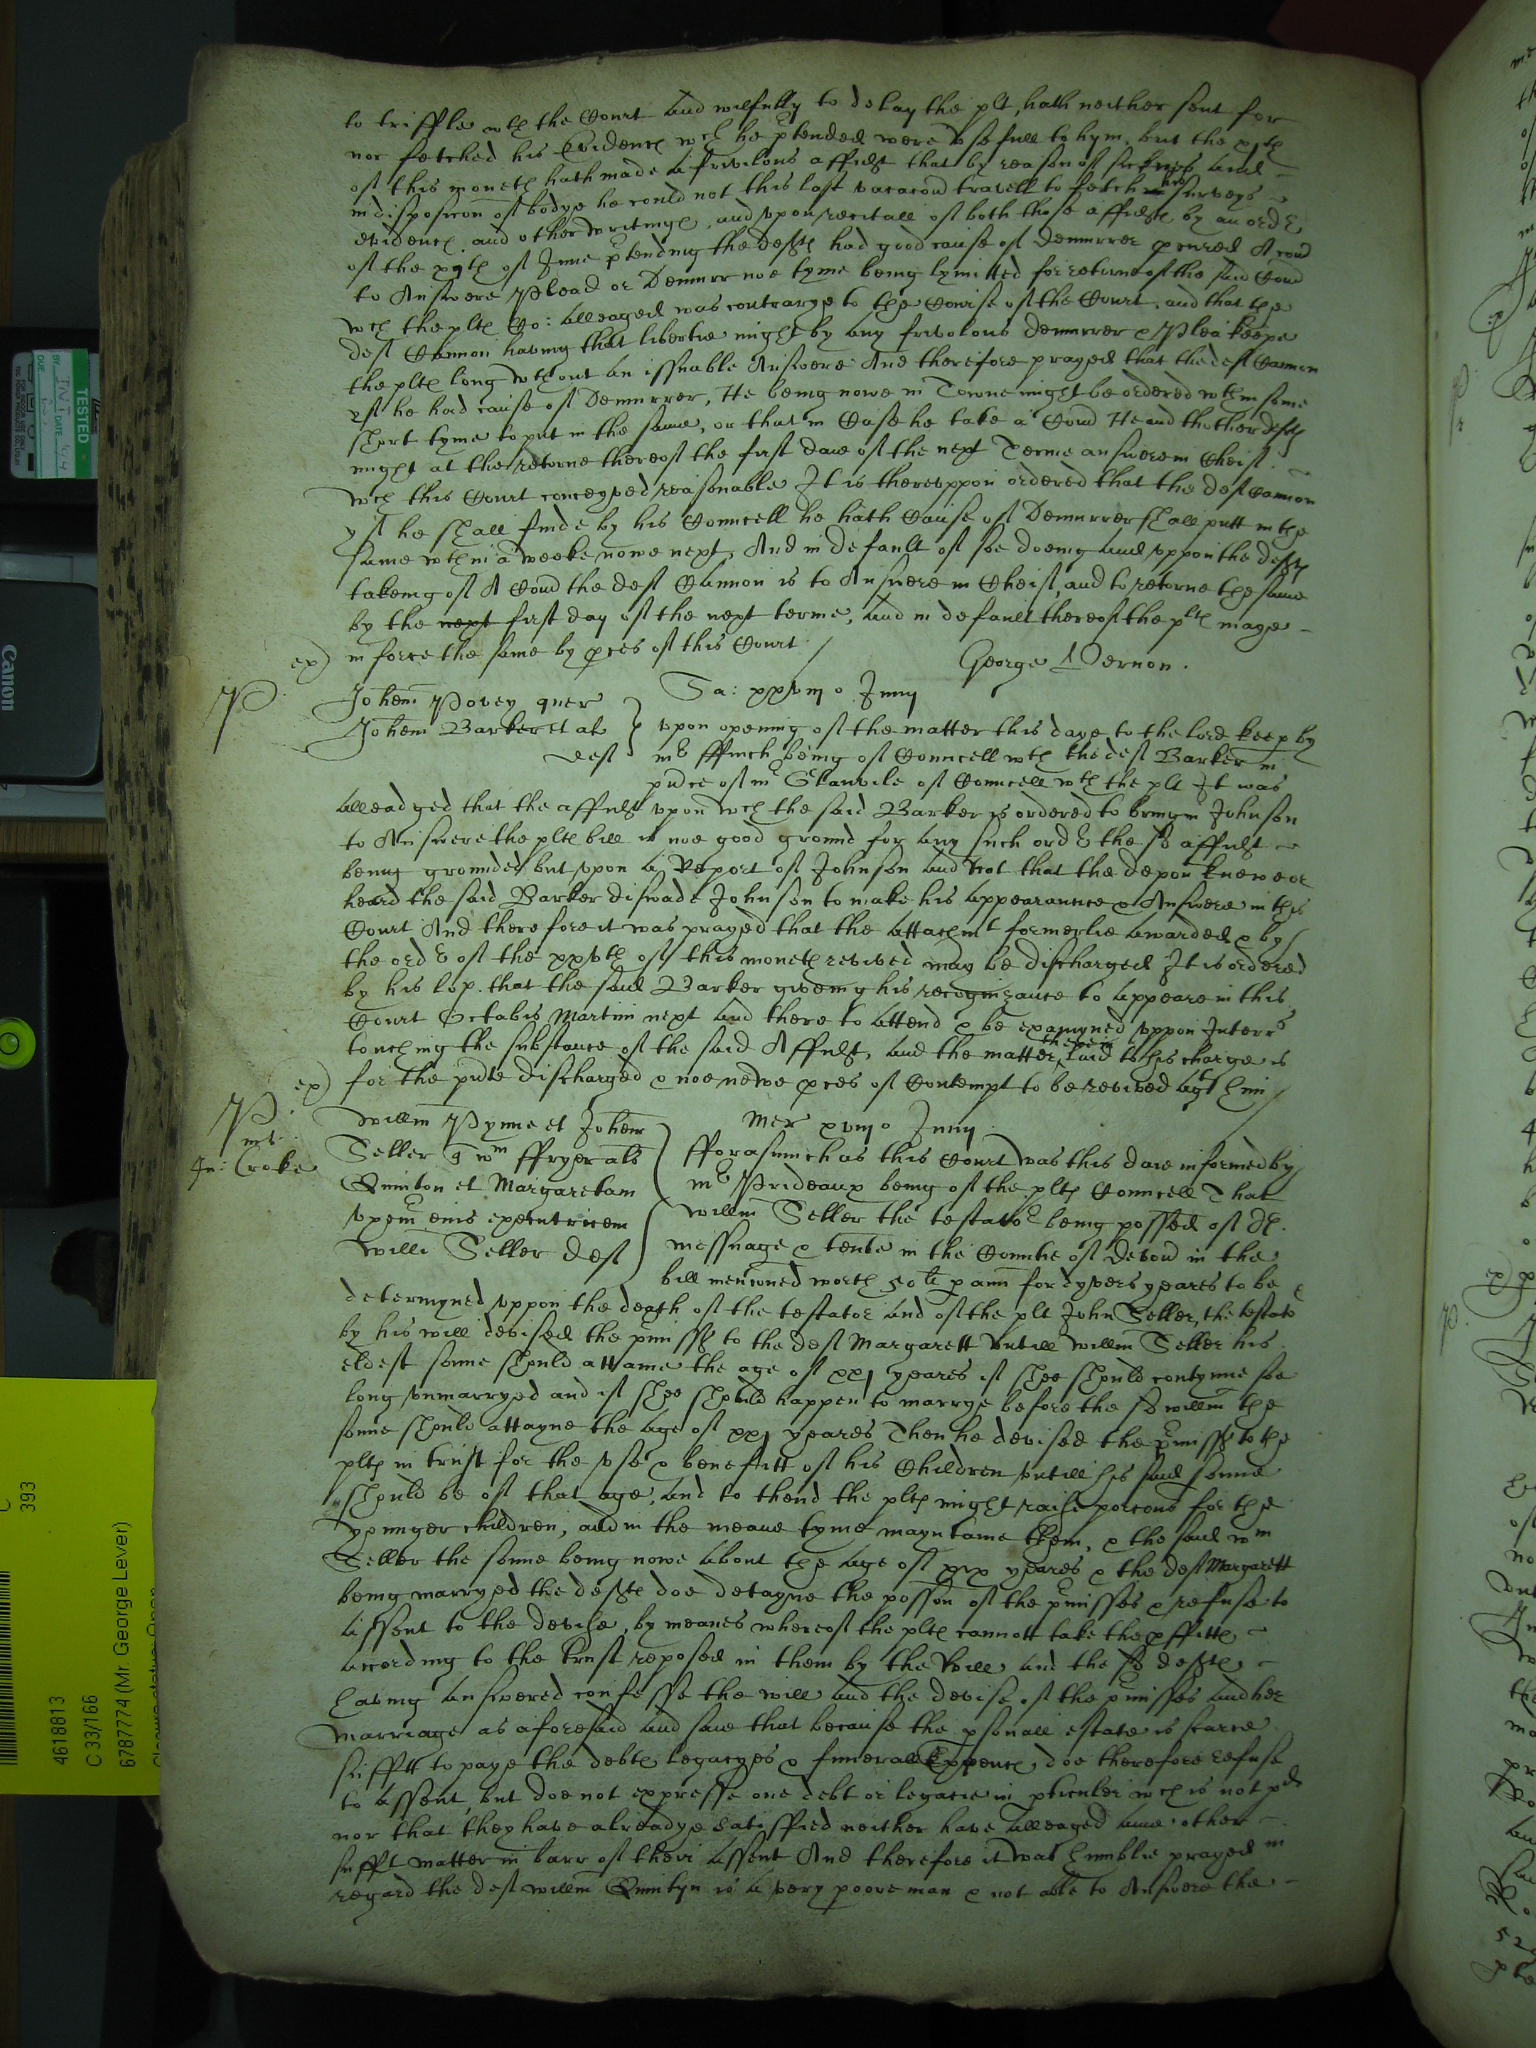 to triffle wth the Court and wilfully to delay the plt, hath neither sent for
nor fetched his Evidence wch he ptended were usefull to hym, but the
of this moneth hath made a frivolous affidt that by reason of sicknes and
indisposicon of bodye he could not this last vacacon travell to fetch his surveys
evidence and other writings, and upon recitall of both those affidts by an order
of the of June ptending the defts had good cause of Demurrer procured A comd
to Answere Plead or Demurr noe tyme being lymitted for returne of the said Comd
wch the plts Co: alleaged was contrarye to the Course of the Court, and that the
deft Cannon having that libertie might by any frivolous demurrer & Plea keepe
the plts long wthout an issuable Answere And therefore prayed that the deft Cannon
yf he had cause of Demurrer, He being nowe in Towne might be ordered wthin some
short tyme to put in the same, or that in Case he take a Comd He and thother defts
might at the retorne thereof the first daie of the next Terme answere in Cheif.
wch this Court conceyved reasonable It is thereuppon ordered that the deft Cannon
yf he shall finde by his Councell he hath Cause of Demurrer shall putt in the
same wthin a weeke nowe next, And in default of soe doeing and uppon the defts
takeing of A Comd the deft Cannon is to Answere in Cheif, and to retorne the same
by the next first day of the next terme, and in default thereof the plts maye
inforce the same by pces of this Court
ex) George Vernon.
P Johem Povey quer
Johem Barker et al
deft
Sa: xxviijo Junij
upon opening of the matter this daye to the lord keep by
mr ffinch being of Councell wth the deft Barker in
pnce of mr Stanvile of Councell wth the plt It was
alleadged that the affidt upon wch the said Barker is ordered to bring in Johnson
to Answere the plts bill is noe good ground for any such order the sd affidt
being grounded but upon a Report of Johnson and Not that the depon knewe or
heard the said Barker diswade Johnson to make his appearannce & Answere in this
Court And therefore it was prayed that the attachmt formerlie awarded & by
the order of the xxvth of this moneth revived may be discharged It is ordered
by his lop. that the said Barker giveing his recognizance to appeare in this
Court Octabis Martini next and there to attend & be examyned uppon Interrs
touching the substance of the said Affidt, and the matter therein laid to his charge is
for the pnte discharged & noe newe pces of Contempt to be revived agt him
ex)
P
mr
Jn: Croke
Willm Pynne et Johem
Seller q wm ffryer als
Quinton et Margaretam
uxem eius executricem
Willi Seller deft
Mer xviijo Junij
fforasmuch as this Court was this daie informed by
mr Prideaux being of the plts Councell That
Willm Seller the testator being possed of
messuage & tente in the Countie of Devon in the
bill mencioned worth 50li p ann for dyvers yeares to be
determyned uppon the death of the testator and of the plt John Seller, the testator
by his will devised the pmisses to the deft Margarett untill Willm Seller his
eldest sonne should attaine the age of xxj yeares if shee should contynue soe
long unmarryed and if shee should happen to marrye before the sd Willm the
sonne should attayne the age of xxj yeares Then he devised the pmisses to the
plts in trust for the use & benefitt of his Children untill his said sonne
should be of that age, and to thend the plts might raise porcons for the
younger children, and in the meane tyme mayntaine them, & the said wm
Seller the sonne being nowe about the age of xix yeares & the deft Margarett
being marryed the defts doe detayne the possion of the pmisses & refuse to
assent to the devise, by meanes whereof the plts cannott take the pffitts
according to the trust reposed in them by the Will, and the sd defts
having answered confesse the will and the devise of the pmisses and her
marriage as aforesaid and saie that because the psonall estate is scarce
suffitt to paye the debts legacyes & funerall Expence doe therefore refuse
to assent, but doe not expresse one debt or legacie in pticuler wch is not pd
nor that they have alreadye satisffied neither have alleaged anie other
sufft matter in barr of their assent And therefore it was humblie prayed in
regard the deft Willm Quintyn is a very poore man & not able to Answere the
TESTED
BY INT DATE
DUE
Canon
C
393
4618813
C 33/166
6787774 (Mr. George Lever)